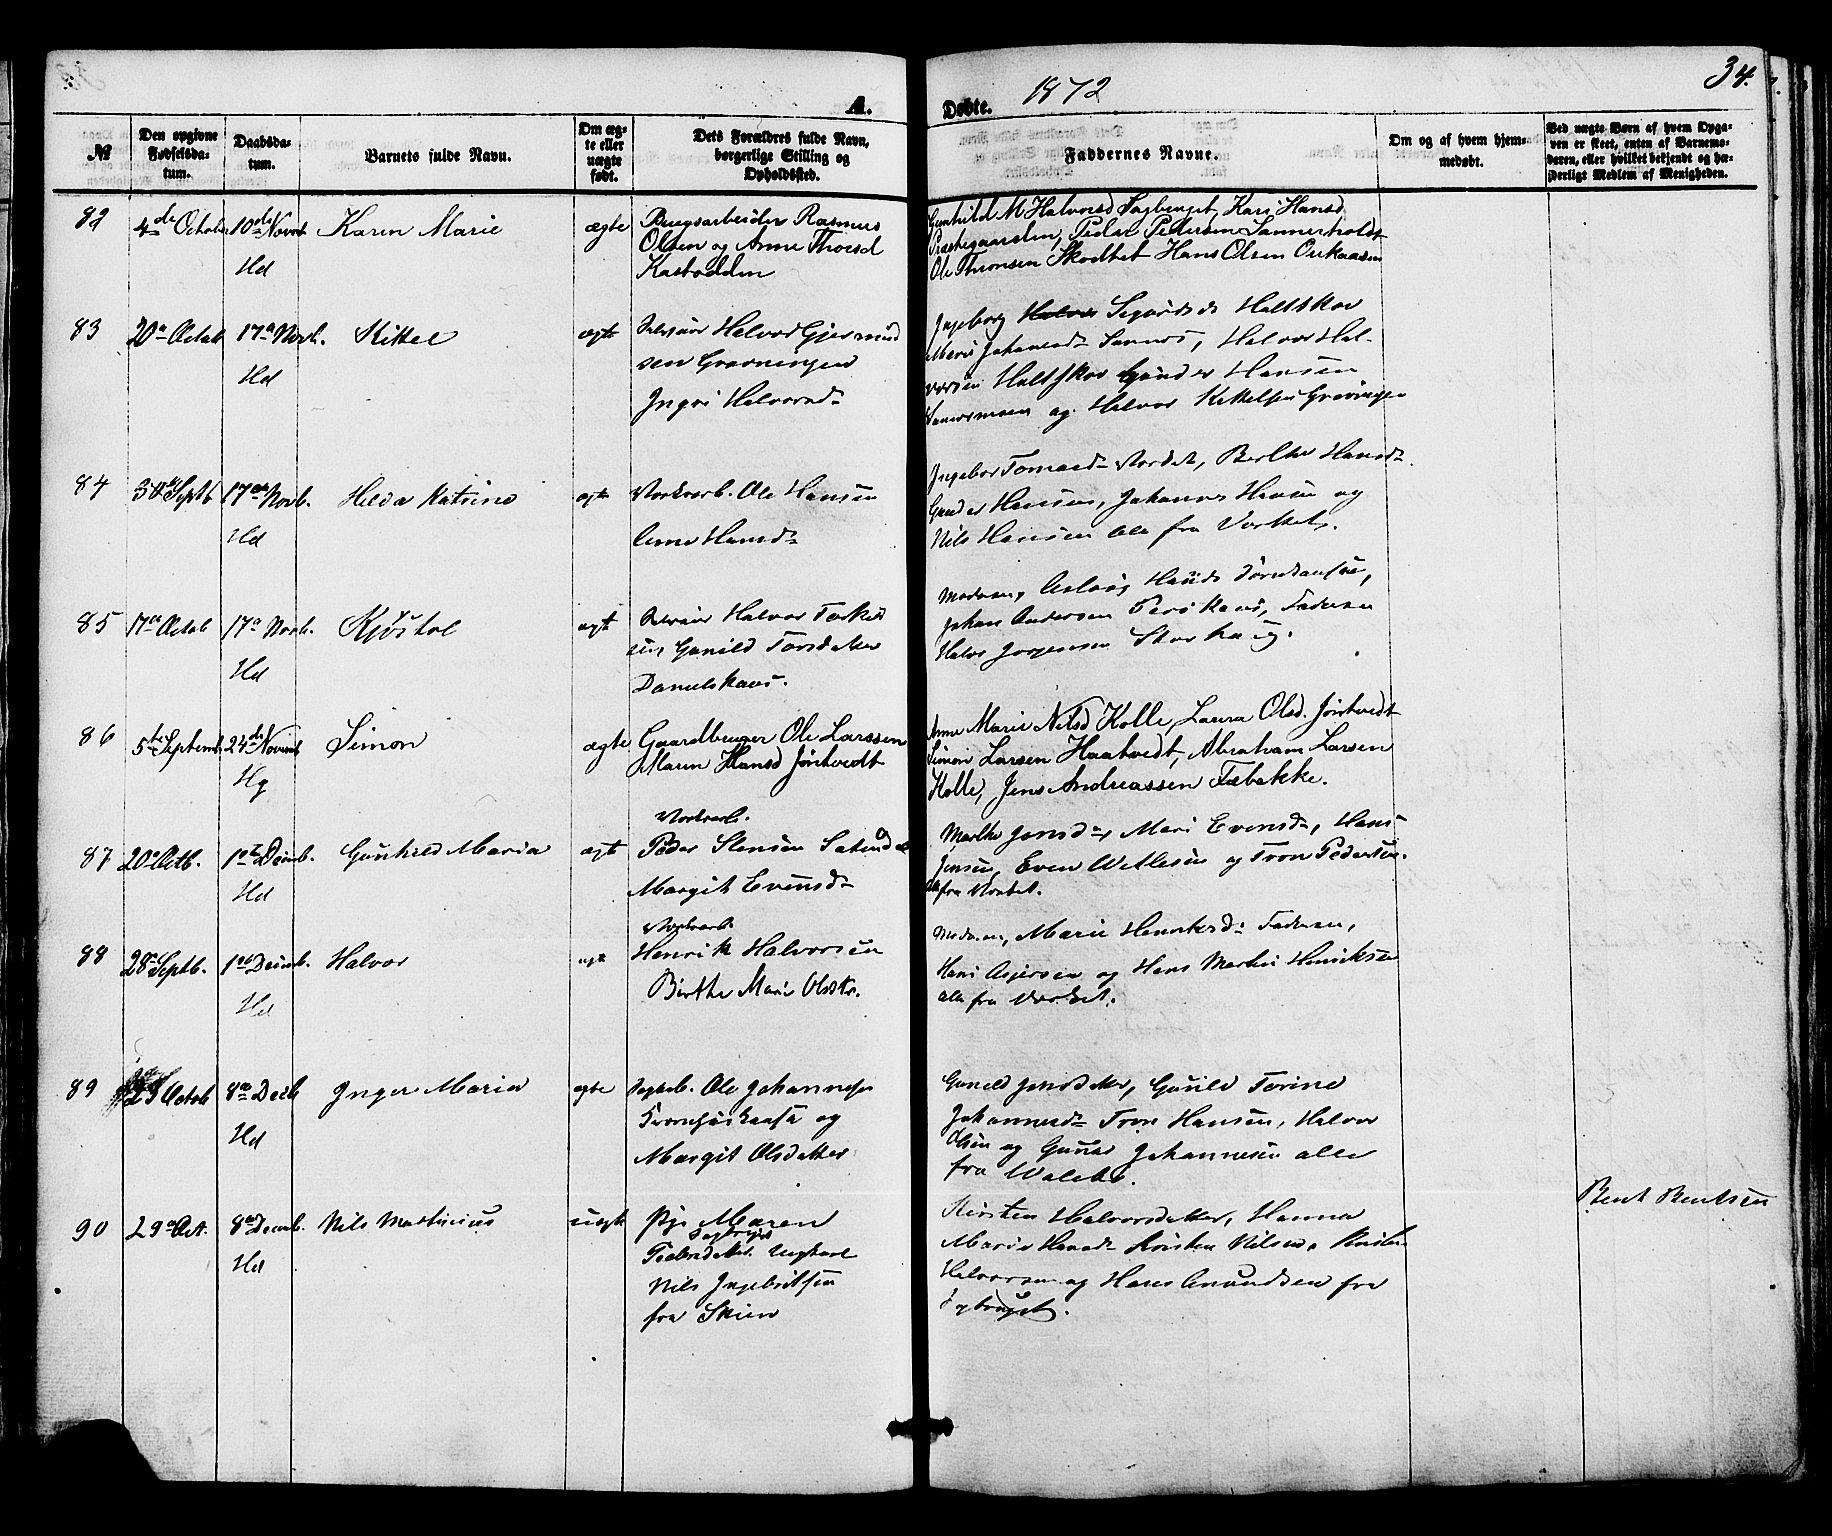 A. Døbte. 1872
34.
№
Den opgivne Fødselsdatum.
Daabsdatum.
Barnets fulde Navn.
Om ægte eller uægte født.
Dets Forældres fulde Navn, borgerlige Stilling og Opholdssted.
Faddernes Navne.
Om og af hvem hjemmedøbt.
Ved uægte Børn af hvem Opgaven er skeet, enten af Barnemoderen, eller hvilket bekjendt og hæderligt Medlem af Menigheden.
82
4de October
10de Novbr
Hd
Karen Marie
ægte
Brugsarbeider Rasmus
Olsen og Anne Thorsd
Kastodden
Gunhild M Halvorsd Sagbruget, Kari Hansd
Præstegaarden, Peder Pedersen Sannerholdt
Ole Thronsen Skodtet Hans Olsen
83
20a Octob
17a Novb.
Hd
Kittel
ægt
Halvor Gjermund
sen Gravningen
Ingri Halvorsd
Ingeborg Sigurdsd Haltskar
Mari Johannesd Sannes, Halvor Hal-
vorsen Haltskar Gunder Hansen
og Halvor Kittelsen Gravningen
84
Septb
17de Novb.
Hd
Helda Katrine
ægt
Værksarb. Ole Hansen
Anne Hansd
Ingebor Værket, Berthe Hansd
Gunder Hansen, Johannes Hansen og
Nils Hansen alle fra Værket.
85
17de Octob
17a Novb.
Hd
Kjøstol
ægt
Halvor Torkild
sen, Gunild Torsdatter
Danielskaas.
Moderen, Aslaug
Johan Andersen, Faderen
Halvor Jørgensen Storhaug.
86
5te Septemb
24de Novemb
Hg
Simon
ægte
Gaardbruger Ole Larssen
Maren Hansd Jørstvedt
Anne Marie Nilsd Kolle, Laura Olsd. Jørstvedt
Simon Larsen Haatvedt, Abraham Larsen
Kolle, Jens Andreassen Fæbakke.
87
20de Octb.
1ste Decmb.
Hd
Gunhild Maria
ægt
Værksarb.
Peder Stensen
Margit Evensd
Marthe Jensd, Mari Evensd, Hans
Jensen, Even Wetlesen og Tron Pedersen.
alle fra Værket.
88
28de Septb.
1ste Decmb.
Hd
Halvor
ægt
Værksarb.
Henrik Halvorsen
Birthe Marie Olsdtr.
Moderen, Marie Henriksd Faderen,
Hans Asgersen og Hans Martin Henriksen
alle fra Værket.
89
29 Octob
8de Decb
Hd
Inger Maria
ægte
Ole Johannesen
og
Margit Olsdatter
Gunild Jensdatter, Gunild Torine
Johannesd Tron Hansen, Halvor
Olsen og Gunar Johannesen alle
fra
90
29de Oct.
8de Decmb.
Hd
Nils Martinius
uægt
Pige Maren
Ungkarl
Nils Ingebritsen
fra Skien
Kirsten Halvorsdatter, Hanna
Marie Hansd Kristen Nilsen,
Halvorsen og Hans Amundsen fra
Sagbruget.
Bent Bentsen